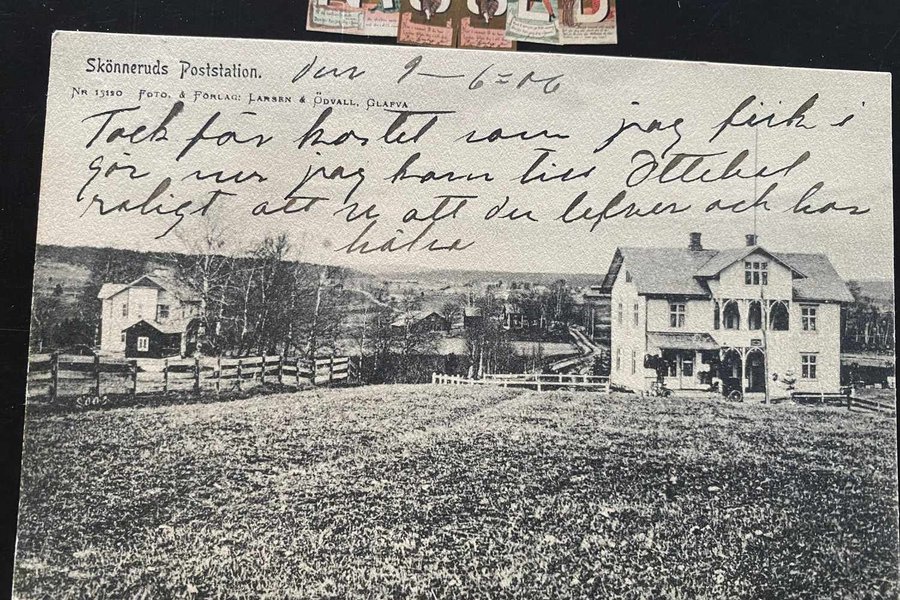 Skönneruds Poststation. den 9-6=06
Nr 13120 Foto. & Förlag: Larsen & Ödvall, Glafva
Tack för kostet som jag fick i
gör ner jag kom till Ottebol
roligt att se att du lefver och har
hälsa